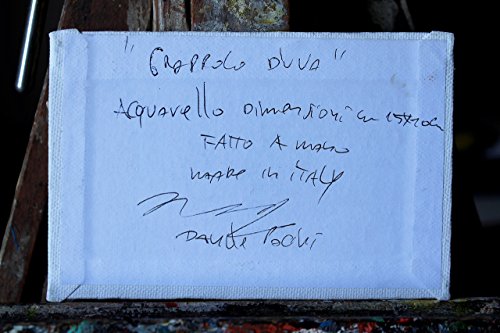 "GRAPPOLO D'UVA"
Acquarello Dimensioni cm 15x10cm
FATTO A MANO
MADE IN ITALY
DAVIDE